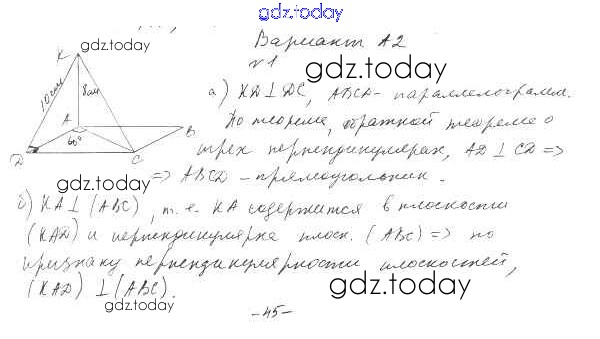 gdz.today
Вариант А2
gdz.today
№1
gdz.today
К
10 см
8 см
А
В
60°
D
С
а) KD ⊥ DC, ABCD - параллелограмм.
По теореме, обратной теореме о
трех перпендикулярах, AD ⊥ CD =>
=> ABCD - прямоугольник.
gdz.today
б) KA ⊥ (ABC), т.е. KA содержится в плоскости
(KAD) и перпендикулярна плоск. (ABC) => по
признаку перпендикулярности плоскостей,
(KAD) ⊥ (ABC).
gdz.today
gdz.today
- 45 -